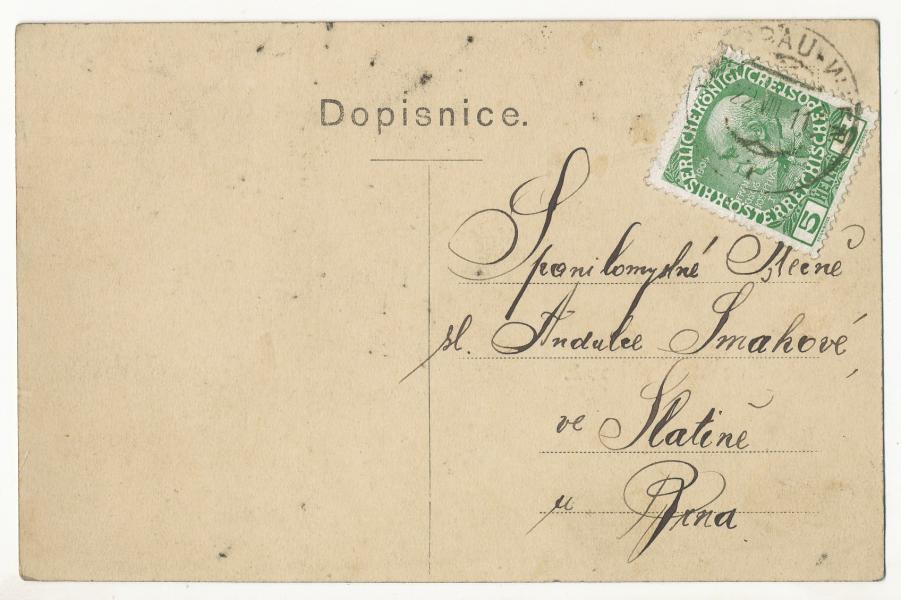 Dopisnice.
KAISERLICHE KÖNIGLICHE ÖSTERREICHISCHE POST
5
VIII 11
Spanilomyslné Slečně
sl. Andulce Smahové
ve Slatině
u Brna